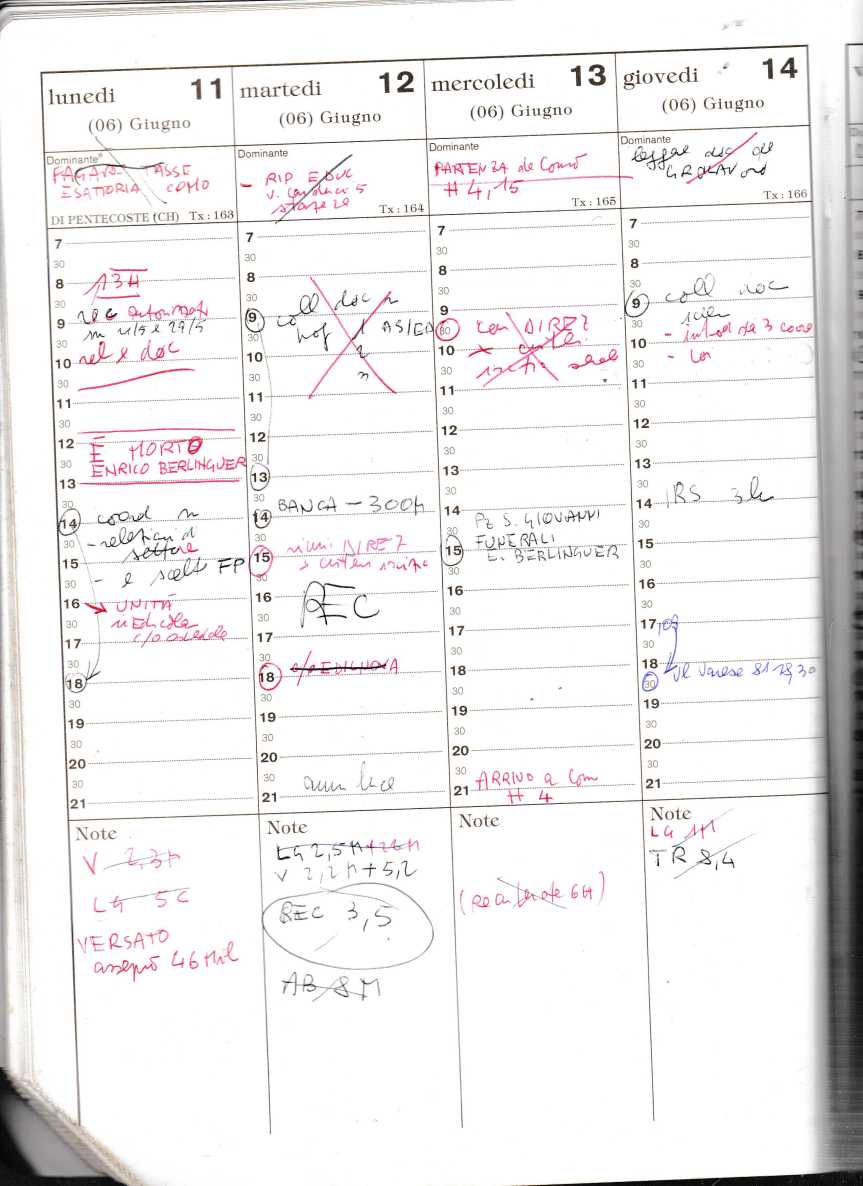 lunedi 11
(06) Giugno
Dominante
PAGARE TASSE
ESATTORIA COMO
DI PENTECOSTE (CH) Tx : 163
7
30
8
30
9
30
10
30
11
30
12
30
13
30
14
30
15
30
16
30
17
30
18
30
19
30
20
30
21
13H
rec
rel e doc
È MORTO
ENRICO BERLINGUER
coord
- relazioni di
settore
- e scelte FP
UNITÀ
in edicola
c/o
Note
V 2,3H
LG 5C
VERSATO
assegno 46 Mil
martedi 12
(06) Giugno
Dominante
- RIP EDUC
v. Carducci 5
Tx : 164
7
30
8
30
9
30
10
30
11
30
12
30
13
30
14
30
15
30
16
30
17
30
18
30
19
30
20
30
21
coll doc
1 AS/ED
2
3
BANCA - 300
DIREZ
REC
Note
LG 2,5H
V 2,2H + 5,2
REC 3,5
AB 8M
mercoledi 13
(06) Giugno
Dominante
PARTENZA da Como
H 4,15
Tx : 165
7
30
8
30
9
30
10
30
11
30
12
30
13
30
14
30
15
30
16
30
17
30
18
30
19
30
20
30
21
con DIREZ
Pz S. GIOVANNI
FUNERALI
E. BERLINGUER
ARRIVO a Com
H 4
Note
6H)
giovedi 14
(06) Giugno
Dominante
leggere doc di
Tx : 166
7
30
8
30
9
30
10
30
11
30
12
30
13
30
14
30
15
30
16
30
17
30
18
30
19
30
20
30
21
coll doc
IRS 3h
Vl Varese 81 18,30
Note
LG 1H
TR 8,4